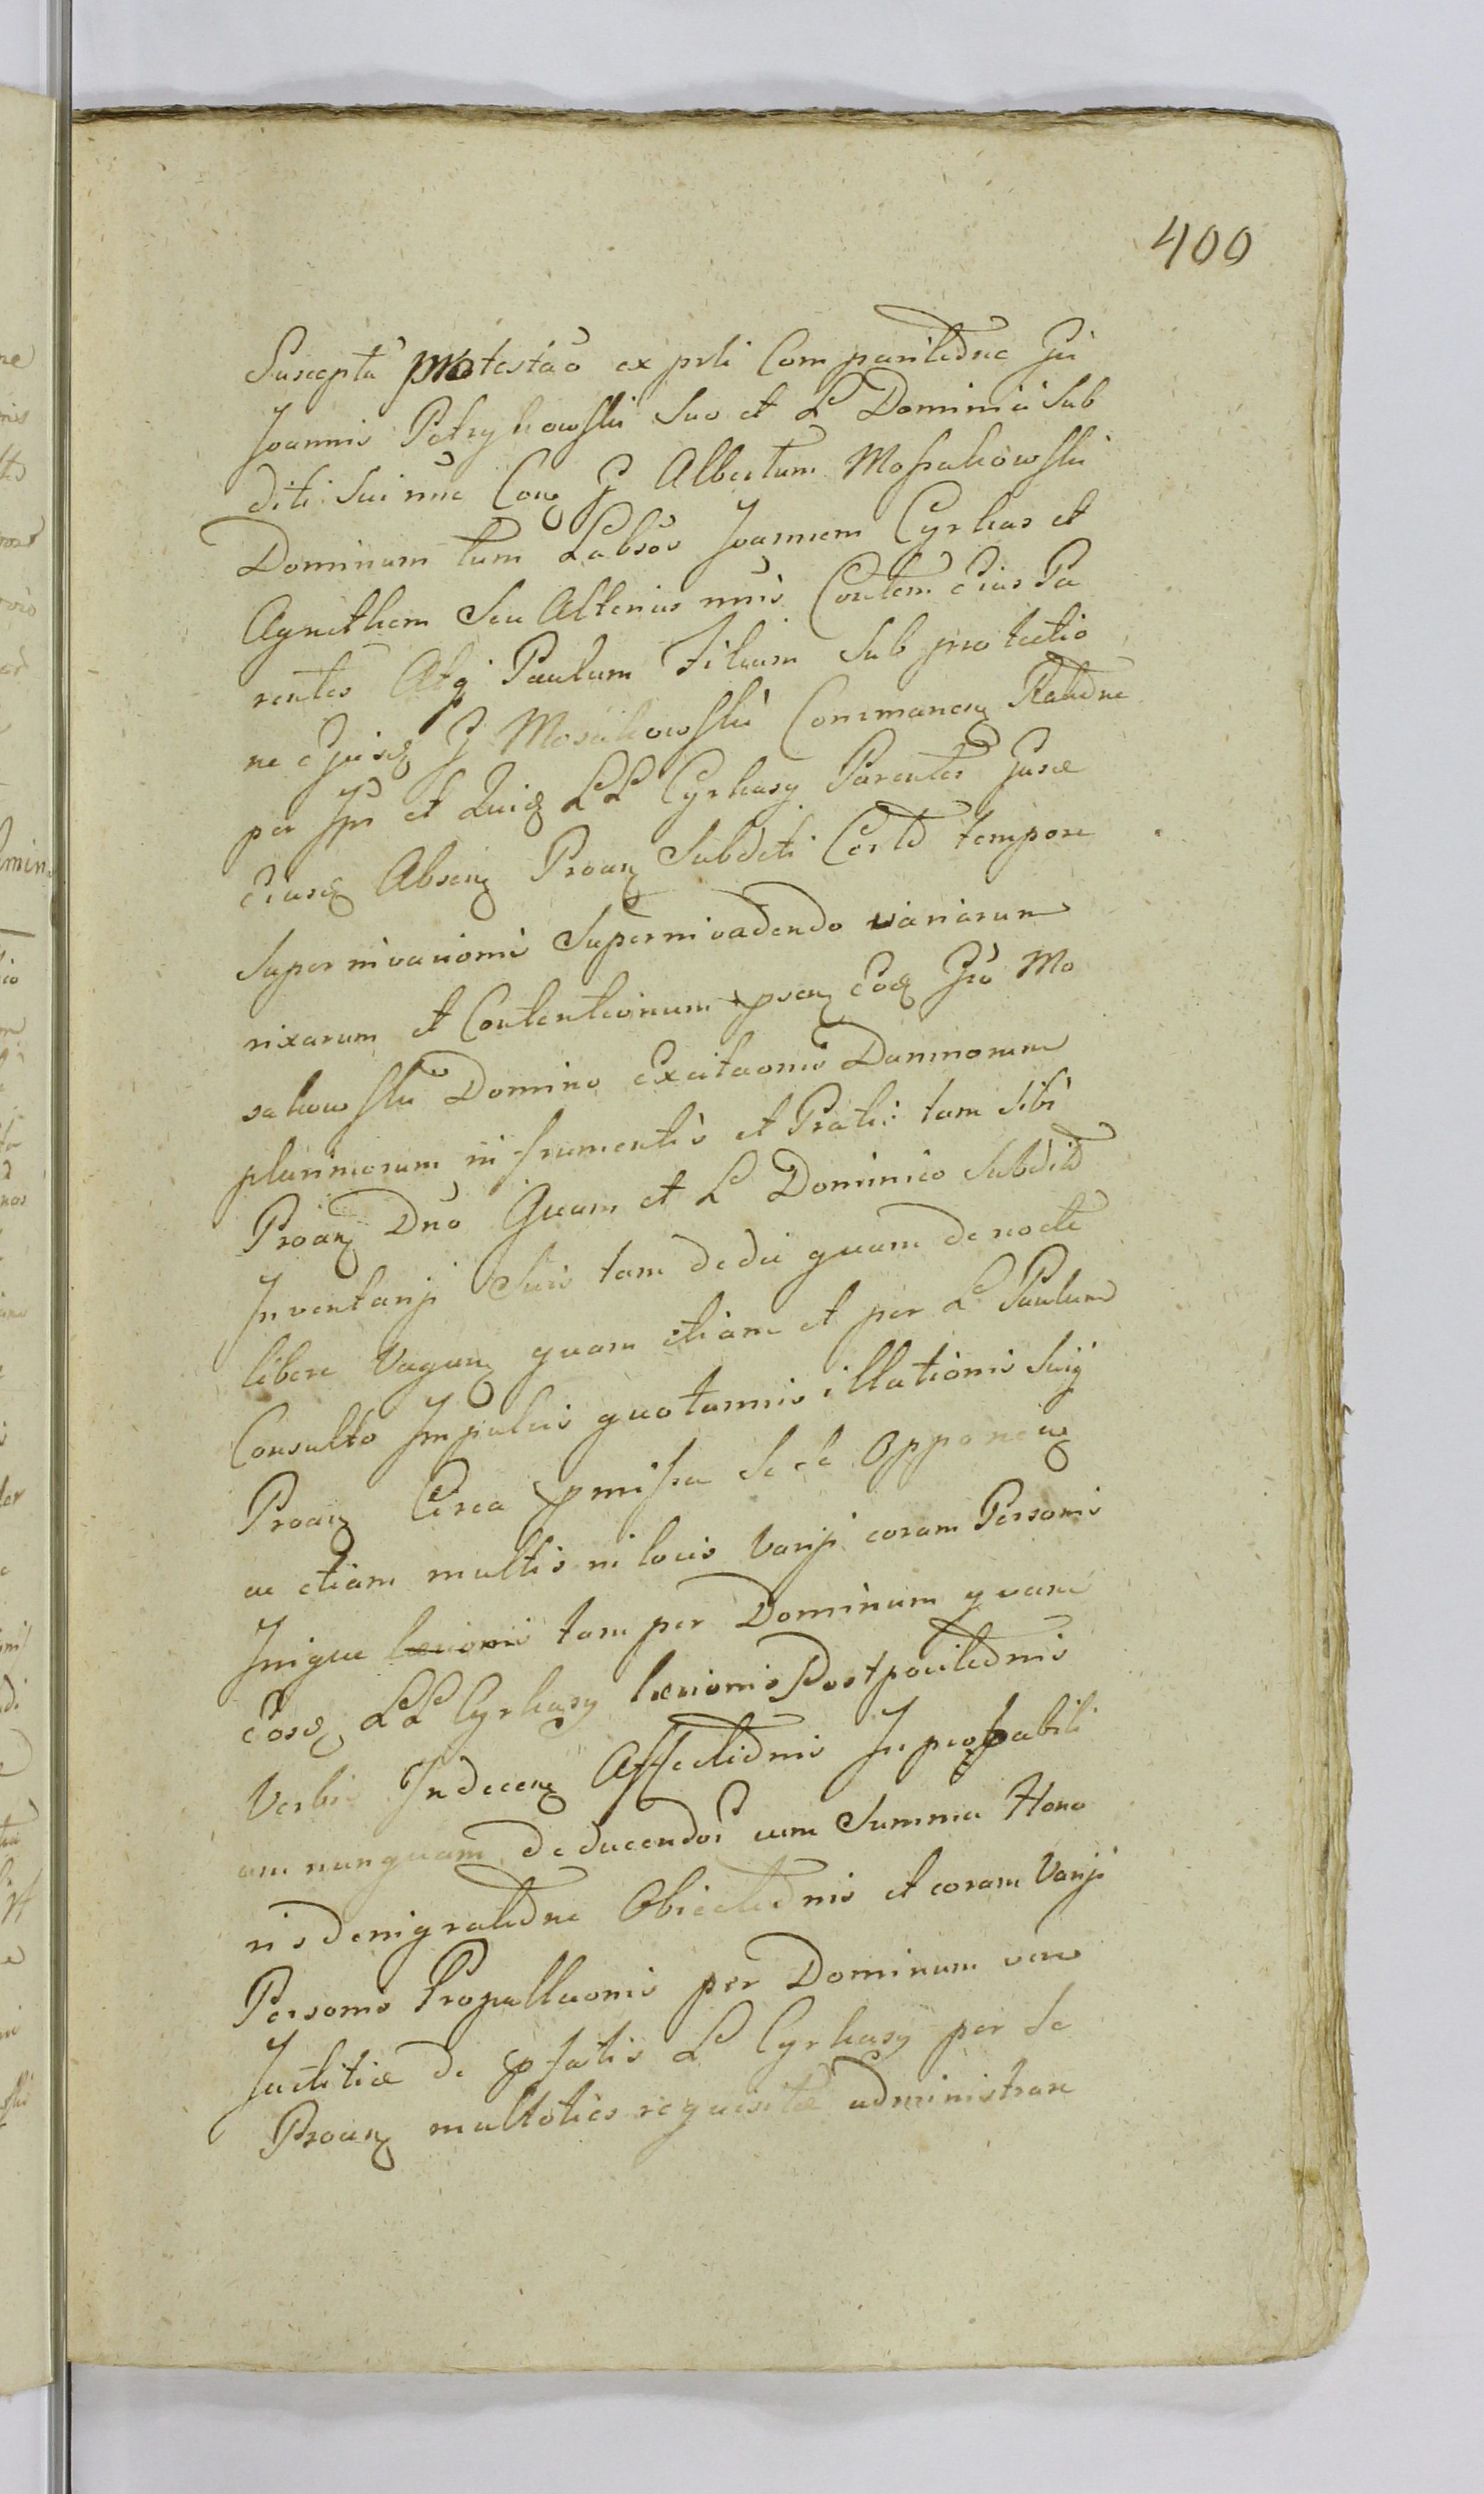 400
Suscepta protestao ex prti Comparitione Gsi
Joannis Petrykowski Suo et L Dominici Sub
diti Sui nne Con G Albertum Mosakowski
Dominum tum Labsos Joannem Cyrkas et
Agnethem Seu Alterius nnis Contem Eius Pa
rentes Atq Paulum Filium Sub protectio
ne Ejusd G Mosakowski Commanen Ratione
per Ips et LL Cyrkasy Parentes
Eiusd Absen Proan Subditi Certo tempore
Supernivadendo variarum
rixarum et Contentionum psen Eod Gso Mo
sakowski Domino Excitaonis Damnorum
plurimorum in frumentis et Pratis tam Sibi
Proan Dno Quam et L Dominico Subdito
Inventarij Suis tam de die quam de nocte
libere Vagan quam etiam et per L Paulum
Consulto Impulsis quotannis illationis
Proan Circa pmissa Sese Opponen
ac etiam multis in locis Varijs coram Personis
Inique tam per Dominum quam
Eosd LL Cyrkasy laesionis Postpositionis
Verbis Indecen Affectionis Improbabili
um nunquam deducendor cum Summa Hono
ris denigratione Obiectionis et coram Varijs
Personis per Dominum vero
Justitiae de pfatis L Cyrkasy per Se
Proan multoties requisitae administrare